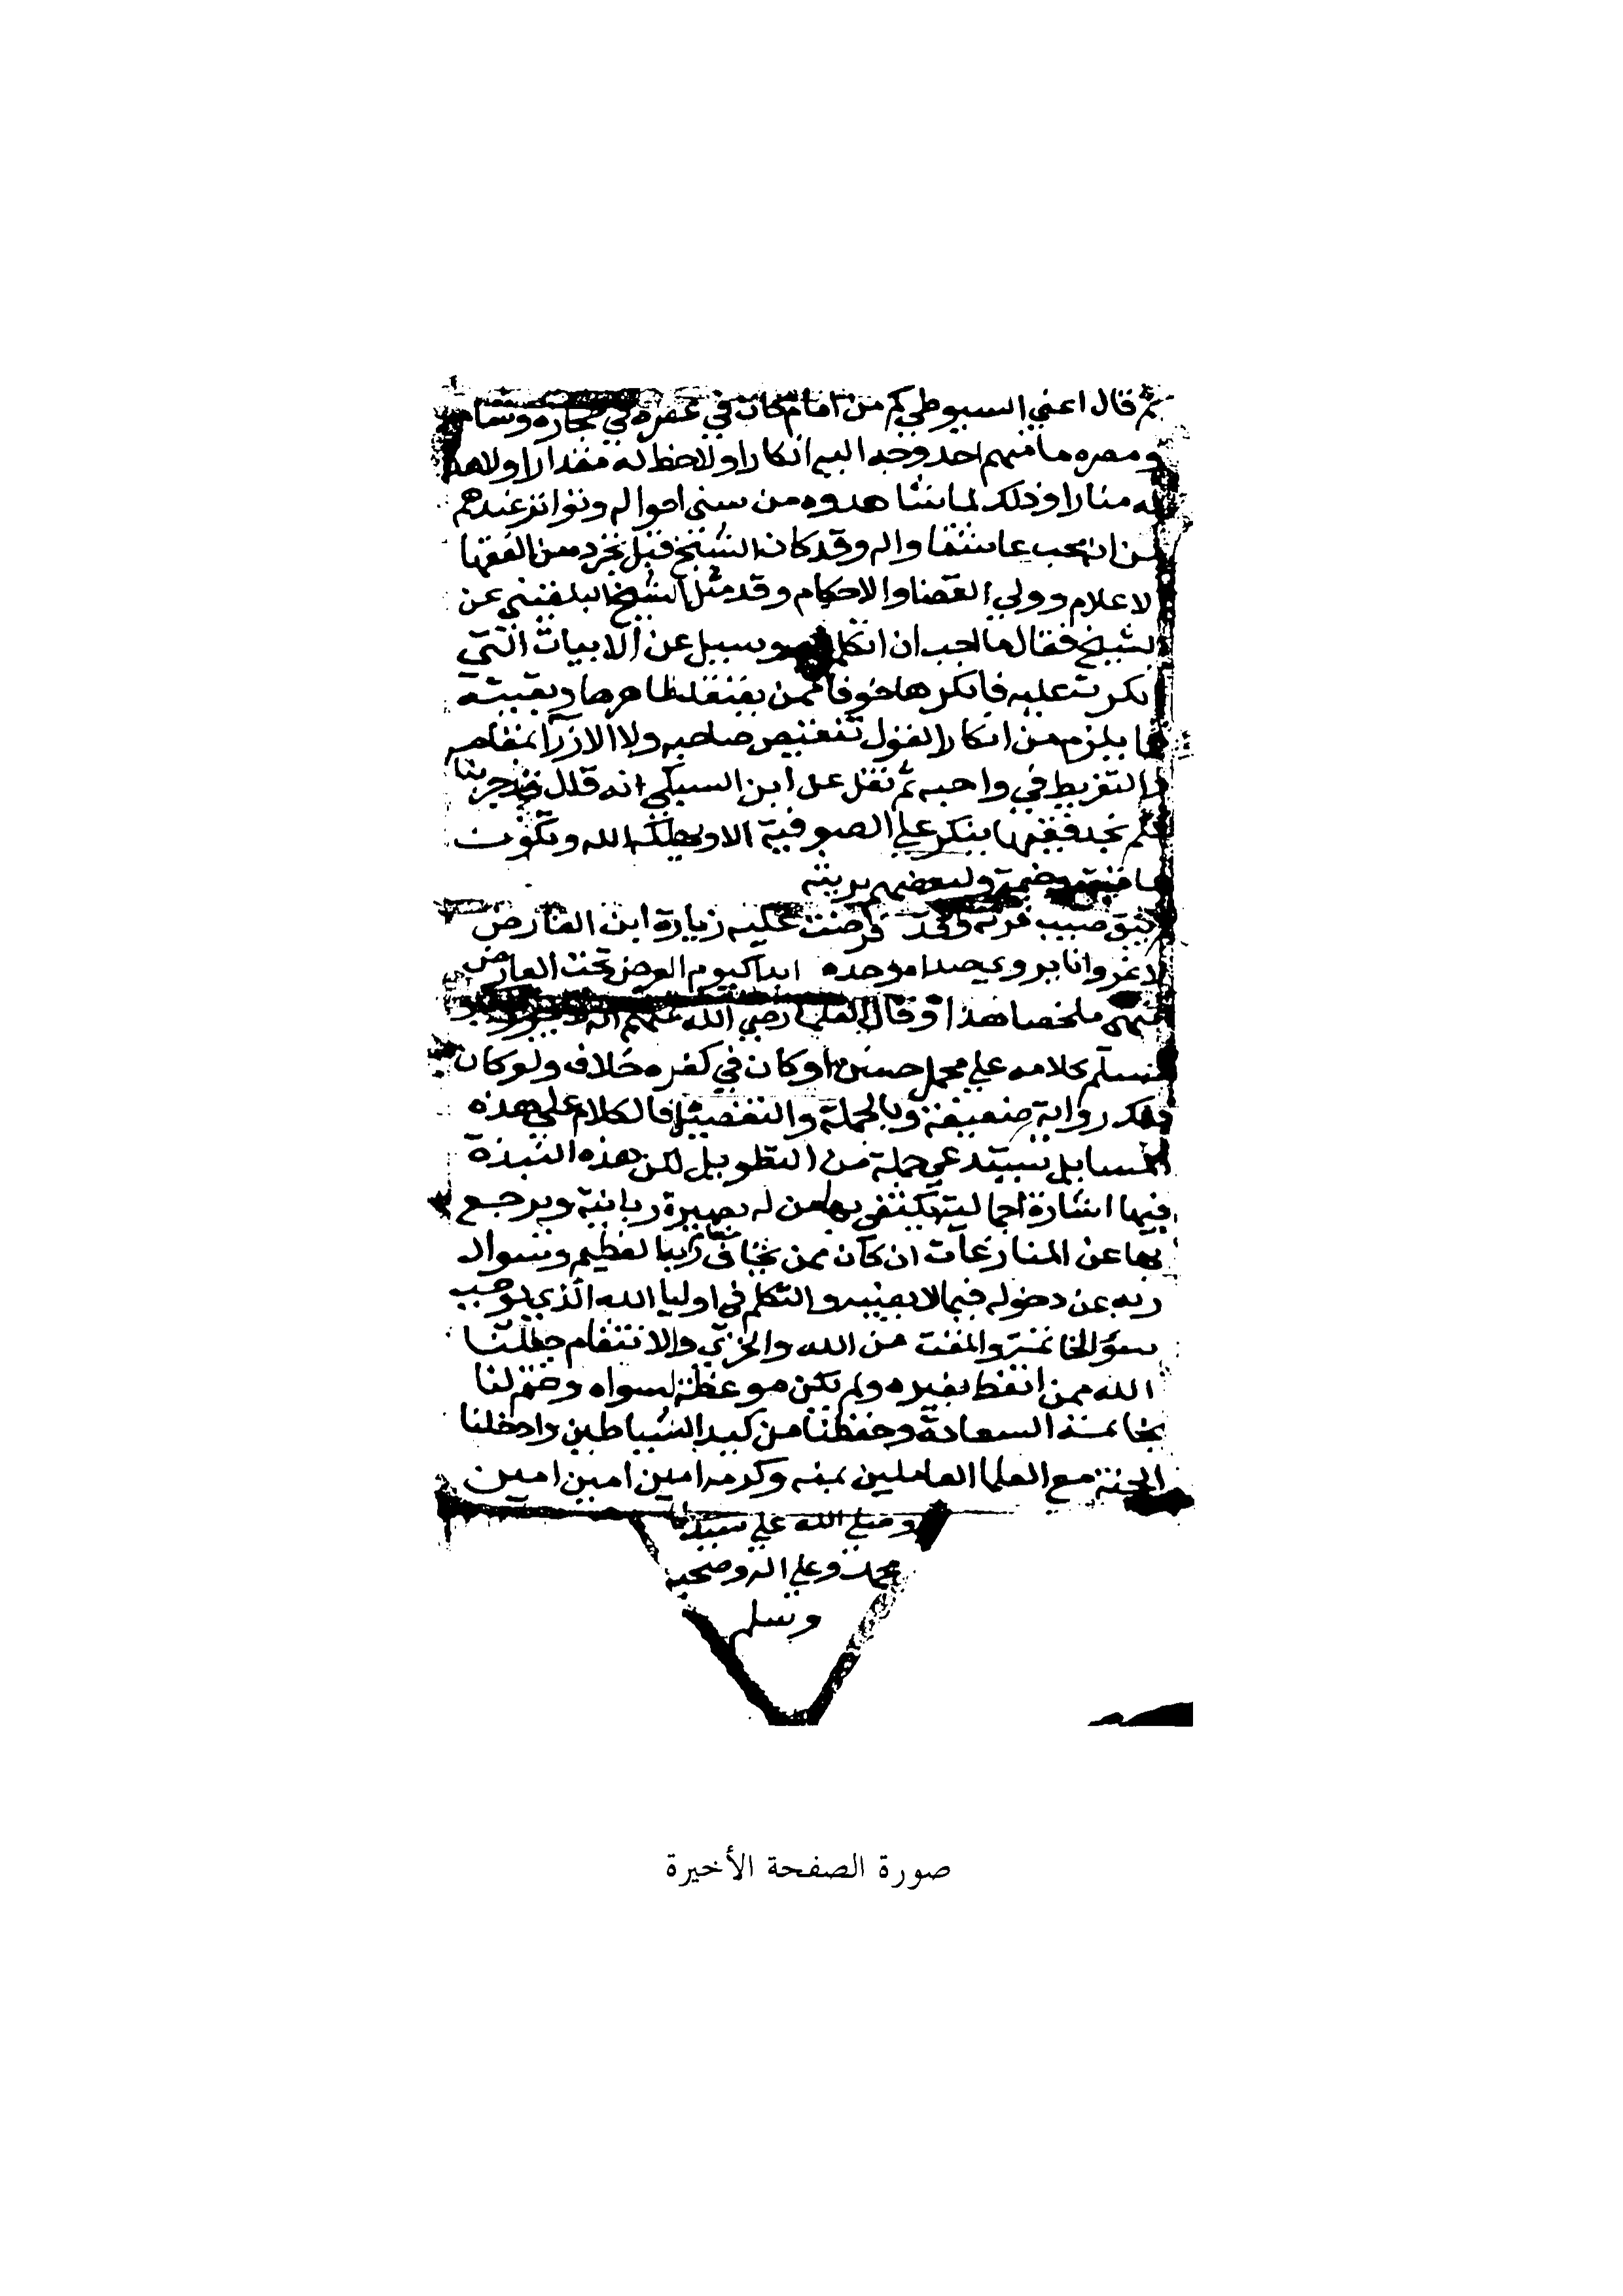 ثم قال اعني السيوطي كم من امام كان في عصره في حجازه وشامه
ومصره ما منهم احد وجه اليه انكارا ولا حظ له مقدارا ولا هد
له منارا وذلك لما شاهدوه من سني احواله وتواتر عندهم
من انه محب عاشق واله وقد كان الشيخ قبل تجرده من الفقها
الاعلام وولي القضا والاحكام وقد سئل الشيخ البلقيني عن
الشيخ فقال ما احب ان اتكلم وسيل عن الابيات التي
انكرت عليه فانكرها خوفا ممن يعتقد ظاهرها ويقينه
ما يلزم من انكار القول تنقيص صاحبه ولا الازرا بمقامه
والتفريط في واجبه ثم نقل عن ابن السبكي انه قال جربنا
فلم نجد فقيها ينكر على الصوفية الا ويهلكه الله وتكون
ولبعضهم يرثيه
صبيب مزنه وقد فرضت عليه زيارة ابن الفارض
لا غرو ان يروى صدا موحده ابدا ليوم العرض تحت العارض
ملخصا هذا وقال العلما رضي الله عنهم انه
مسلم كلامه على محمل حسن او كان في كفره خلاف ولو كان
ذلك رواية ضعيفة وبالجملة والتفصيل فالكلام على هذه
المسايل يستدعي جملة من التطويل لكن هذه النبذة
فيها اشارة اجمالية يكتفي بها من له بصيرة ربانية ويرجع
بها عن المنازعات ان كان ممن يخاف مقام ربنا العظيم وسوال
ربه عن دخوله فيما لا يعنيه والتكلم في اوليا الله الذي يوجب
سو الخاتمة والمقت من الله والخزي والانتقام جعلنا
الله ممن اتعظ بغيره ولم يكن موعظة لسواه وختم لنا
بخاتمة السعادة وحفظنا من كيد الشياطين وادخلنا
الجنة مع العلما العاملين بمنه وكرمه امين امين امين
وصلى الله على سيدنا
محمد وعلى اله وصحبه
وسلم
صورة الصفحة الأخيرة